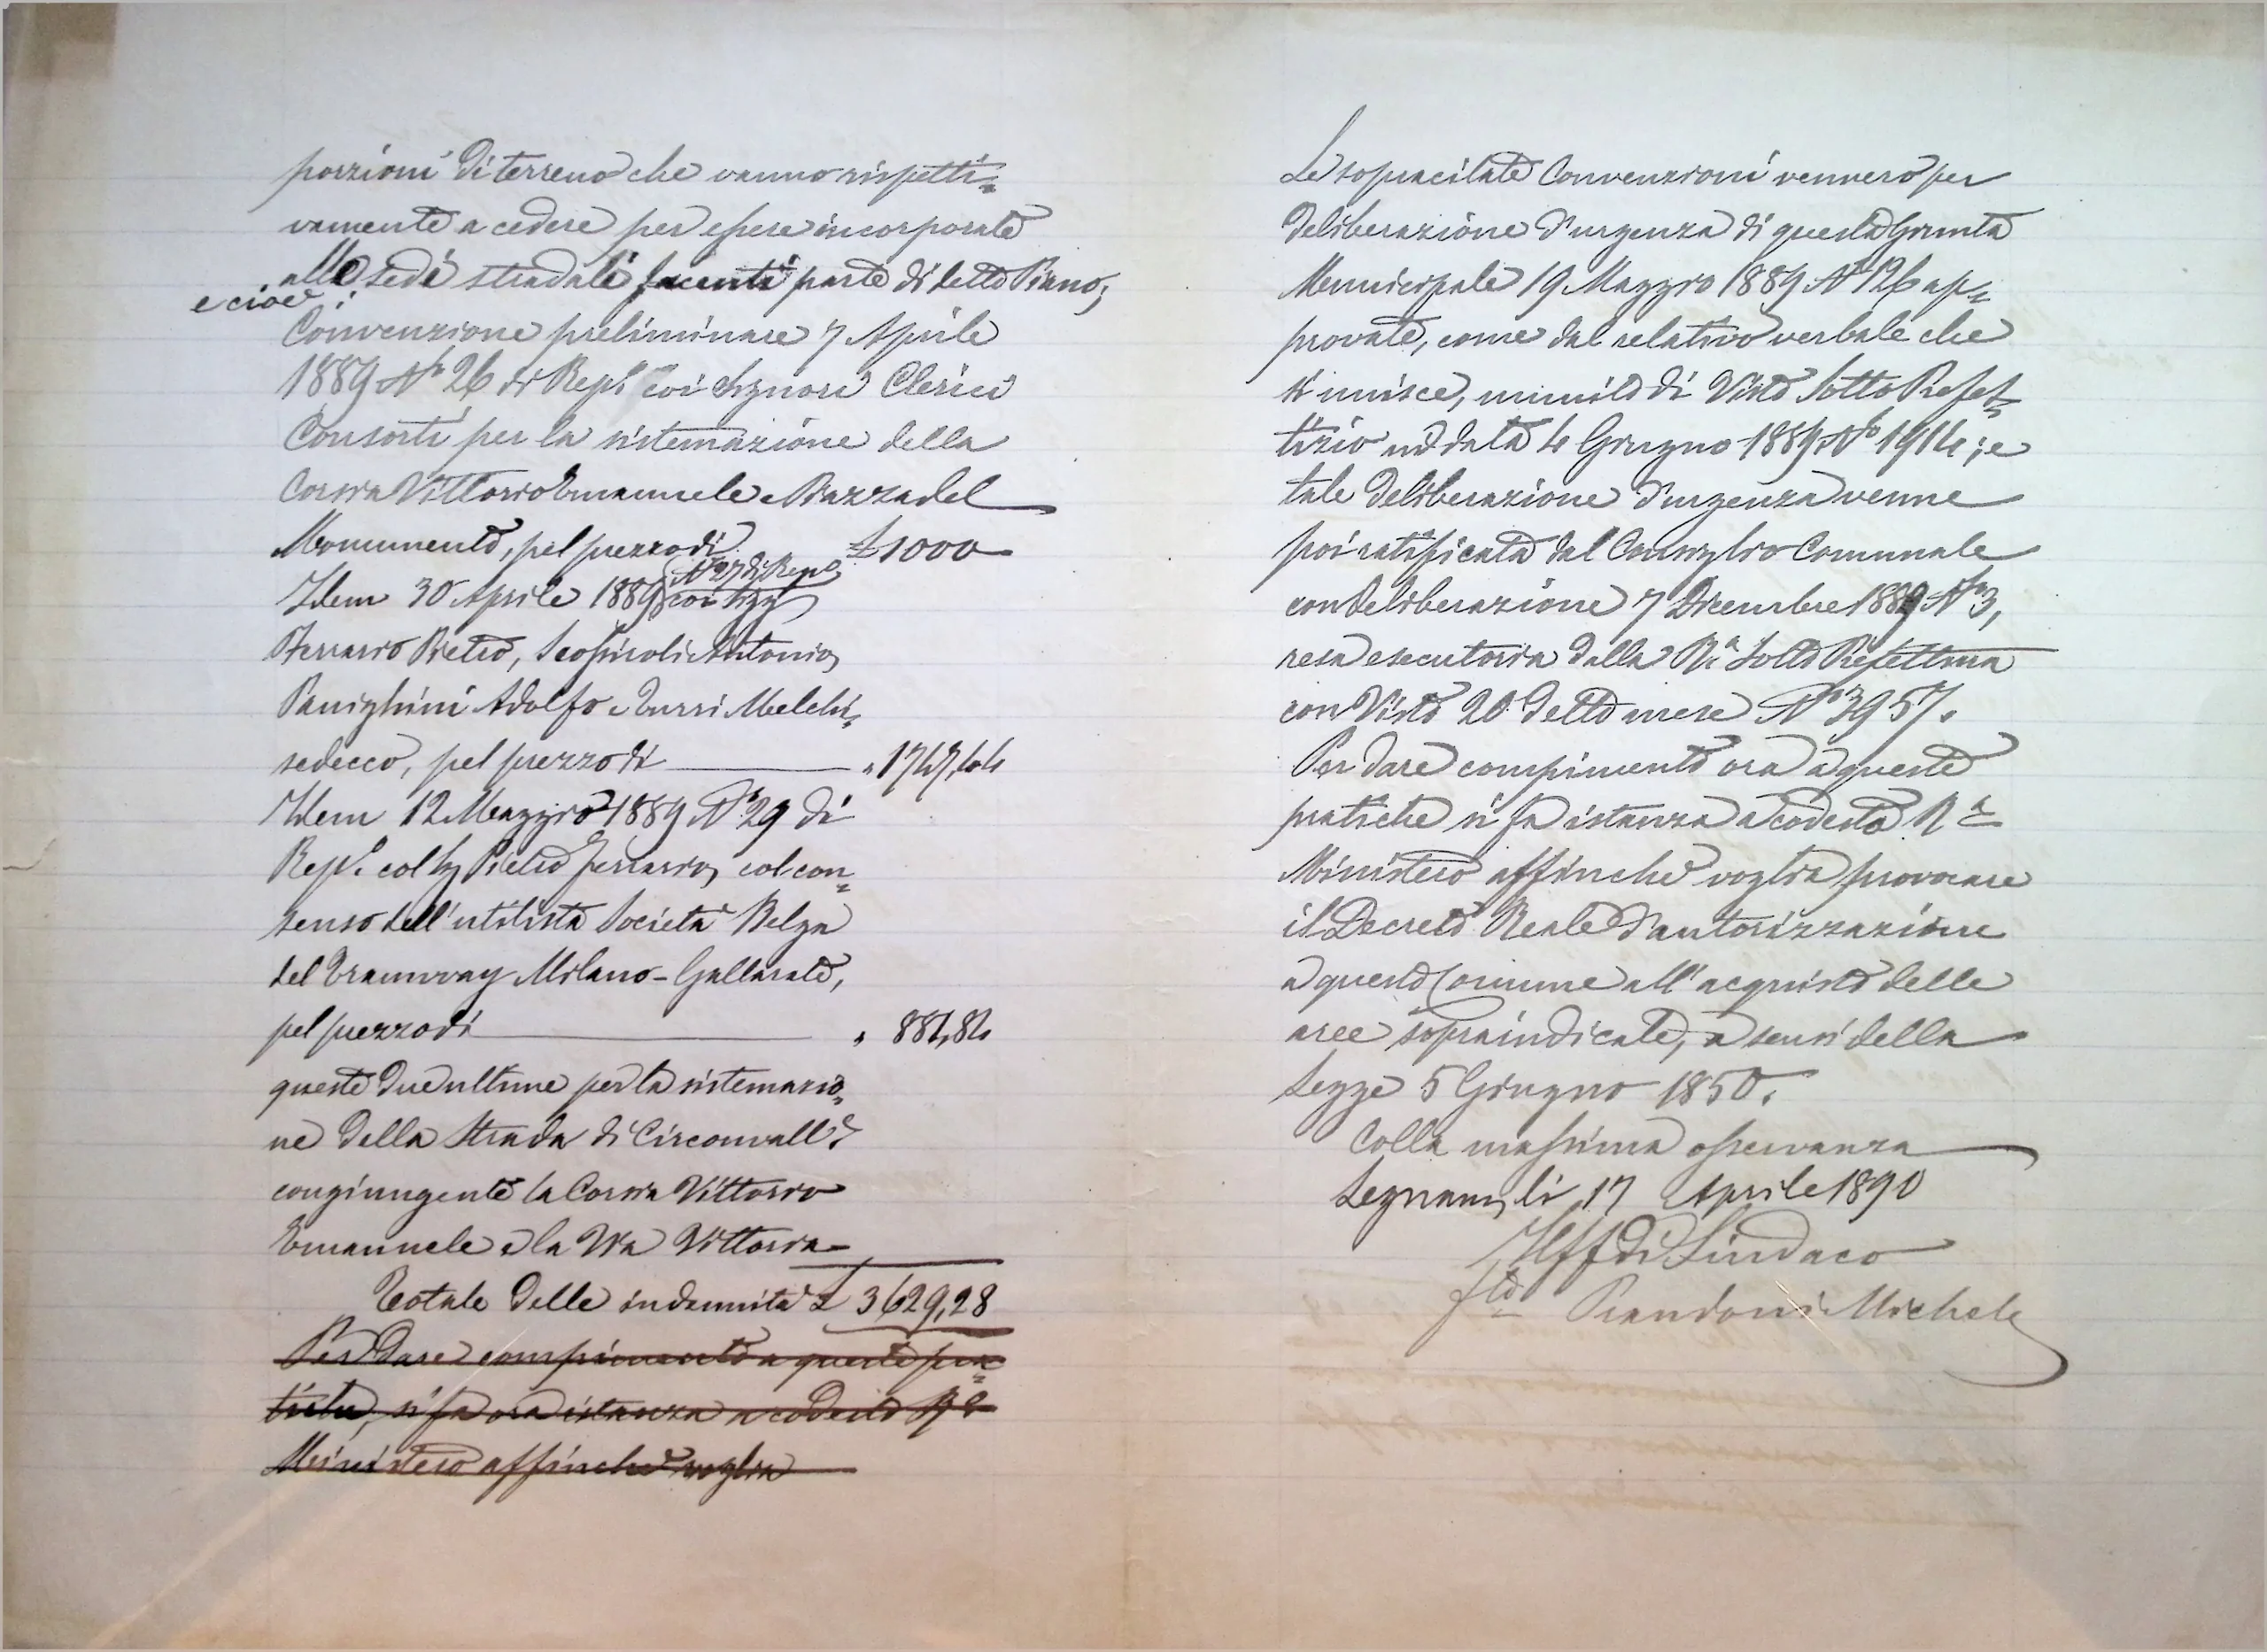 porzioni di terreno che vanno rispetti=
vamente a cedere per essere incorporate
alle sedi stradali facenti parte di detto Piano;
e cioè:
Convenzione preliminare 7 Aprile
1889 N° 26 di Rep° coi Signori Clerici
Consorti per la sistemazione della
Corsia Vittorio Emanuele e Piazza del
Monumento, pel prezzo di £ 1000
N° 27 di Rep°
Idem 30 Aprile 1889 coi Sigg
Ferrario Pietro, Antonio,
Panighini Adolfo e Turri Melchi=
sedecco, pel prezzo di " 1747,44
Idem 12 Maggio 1889 N° 29 di
Rep° col Sig Pietro Ferrario, col con=
senso dell'utilista Società Belga
del Tramway Milano-Gallarate,
pel prezzo di " 881,84
queste due ultime per la sistemazio=
ne della Strada di Circonvalle
congiungente la Corsia Vittorio
Emanuele e la Via Vittoria
Totale delle indennità £ 3629,28
Per dare compimento a queste pra=
tiche, si fa ora istanza a codesto R°
Ministero affinchè voglia
Le sopracitate Convenzioni vennero per
deliberazione d'urgenza di questa Giunta
Municipale 19 Maggio 1889 N° 126 ap=
provate, come dal relativo verbale che
si unisce, munito di Visto Sotto Prefet=
tizio in data 4 Giugno 1889 N° 1914; e
tale deliberazione d'urgenza venne
poi ratificata dal Consiglio Comunale
con deliberazione 7 Dicembre 1889 N° 3,
resa esecutoria dalla Ra Sotto Prefettura
con Visto 20 detto mese N° 3957.
Per dare compimento ora a queste
pratiche si fa istanza a codesto R°
Ministero affinchè voglia provocare
il Decreto Reale d'autorizzazione
a questo Comune all'acquisto delle
aree sopraindicate, a sensi della
Legge 5 Giugno 1850.
Colla massima osservanza
Legnano, li 17 Aprile 1890
Il ff di Sindaco
fto Prandoni Michele